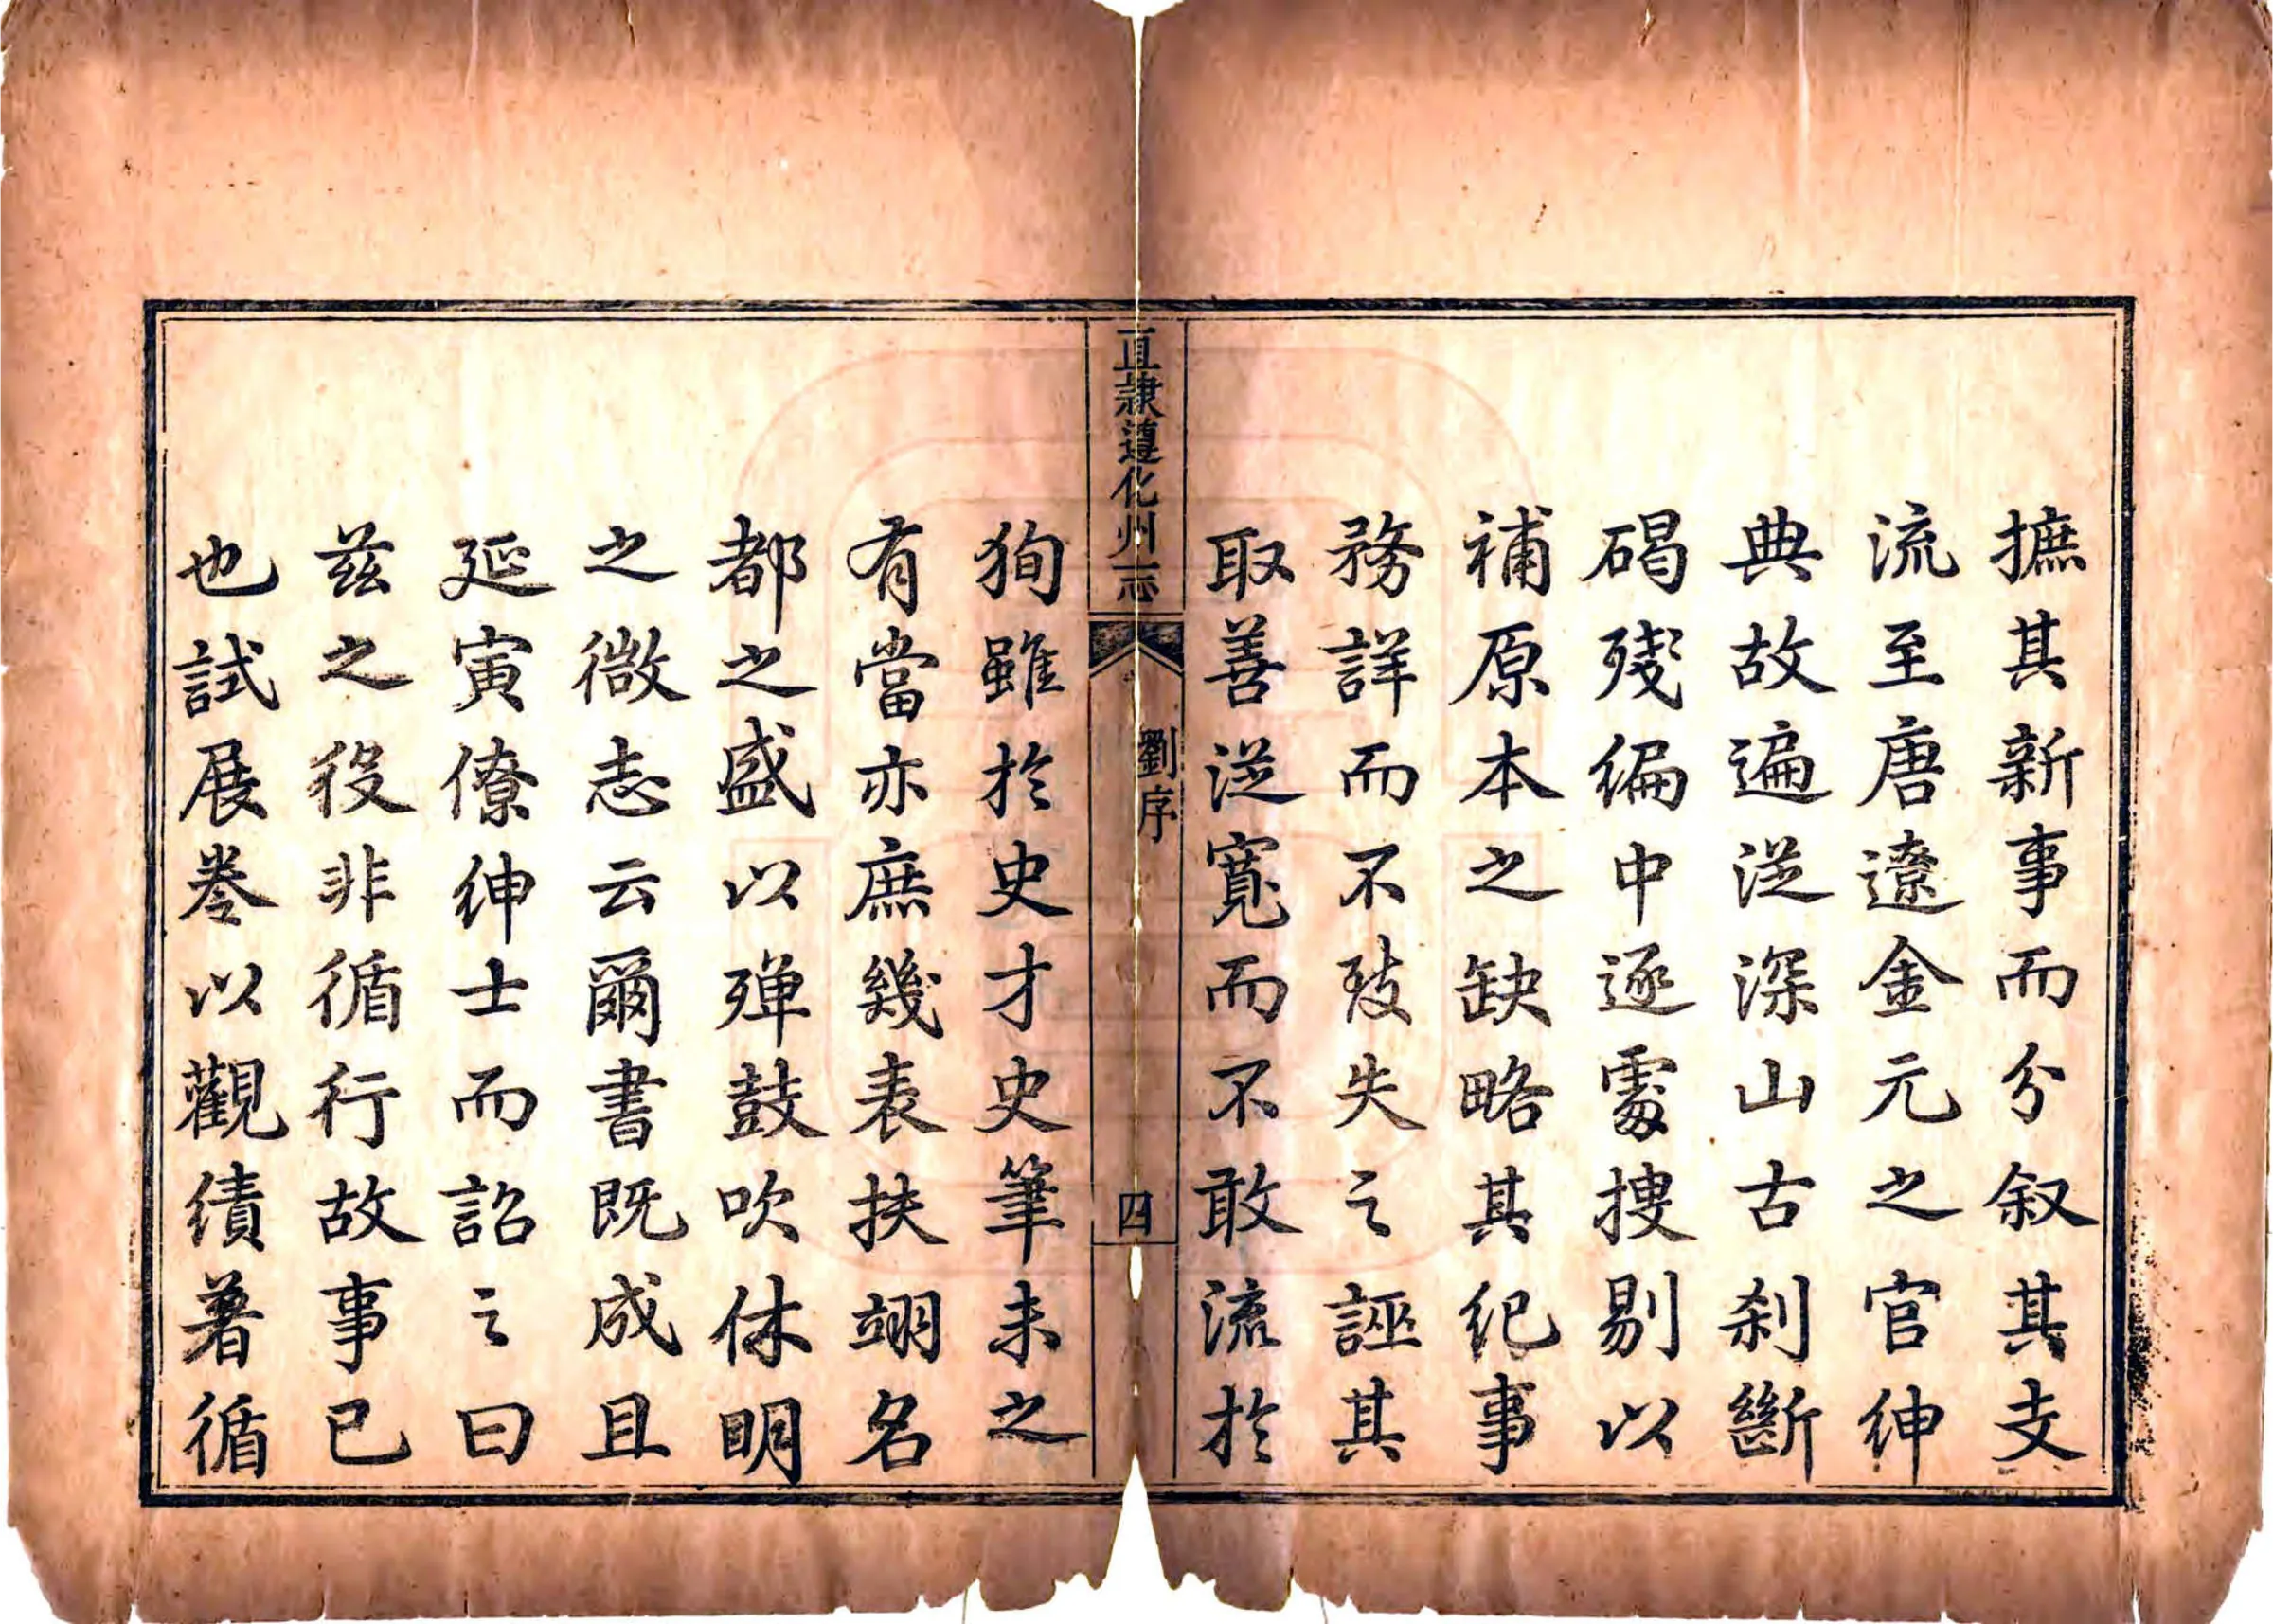 摭其新事而分叙其支
流至唐遼金元之官紳
典故遍從深山古刹斷
碣殘編中逐處搜剔以
補原本之缺略其紀事
務詳而不攱失之誣其
取善從寬而不敢流於
直隸遵化州志
劉序
四
狥雖於史才史筆未之
有當亦庶幾表扶翊名
都之盛以殫鼓吹休明
之微志云爾書既成且
延寅僚紳士而詔之曰
兹之役非循行故事已
也試展卷以觀績著循